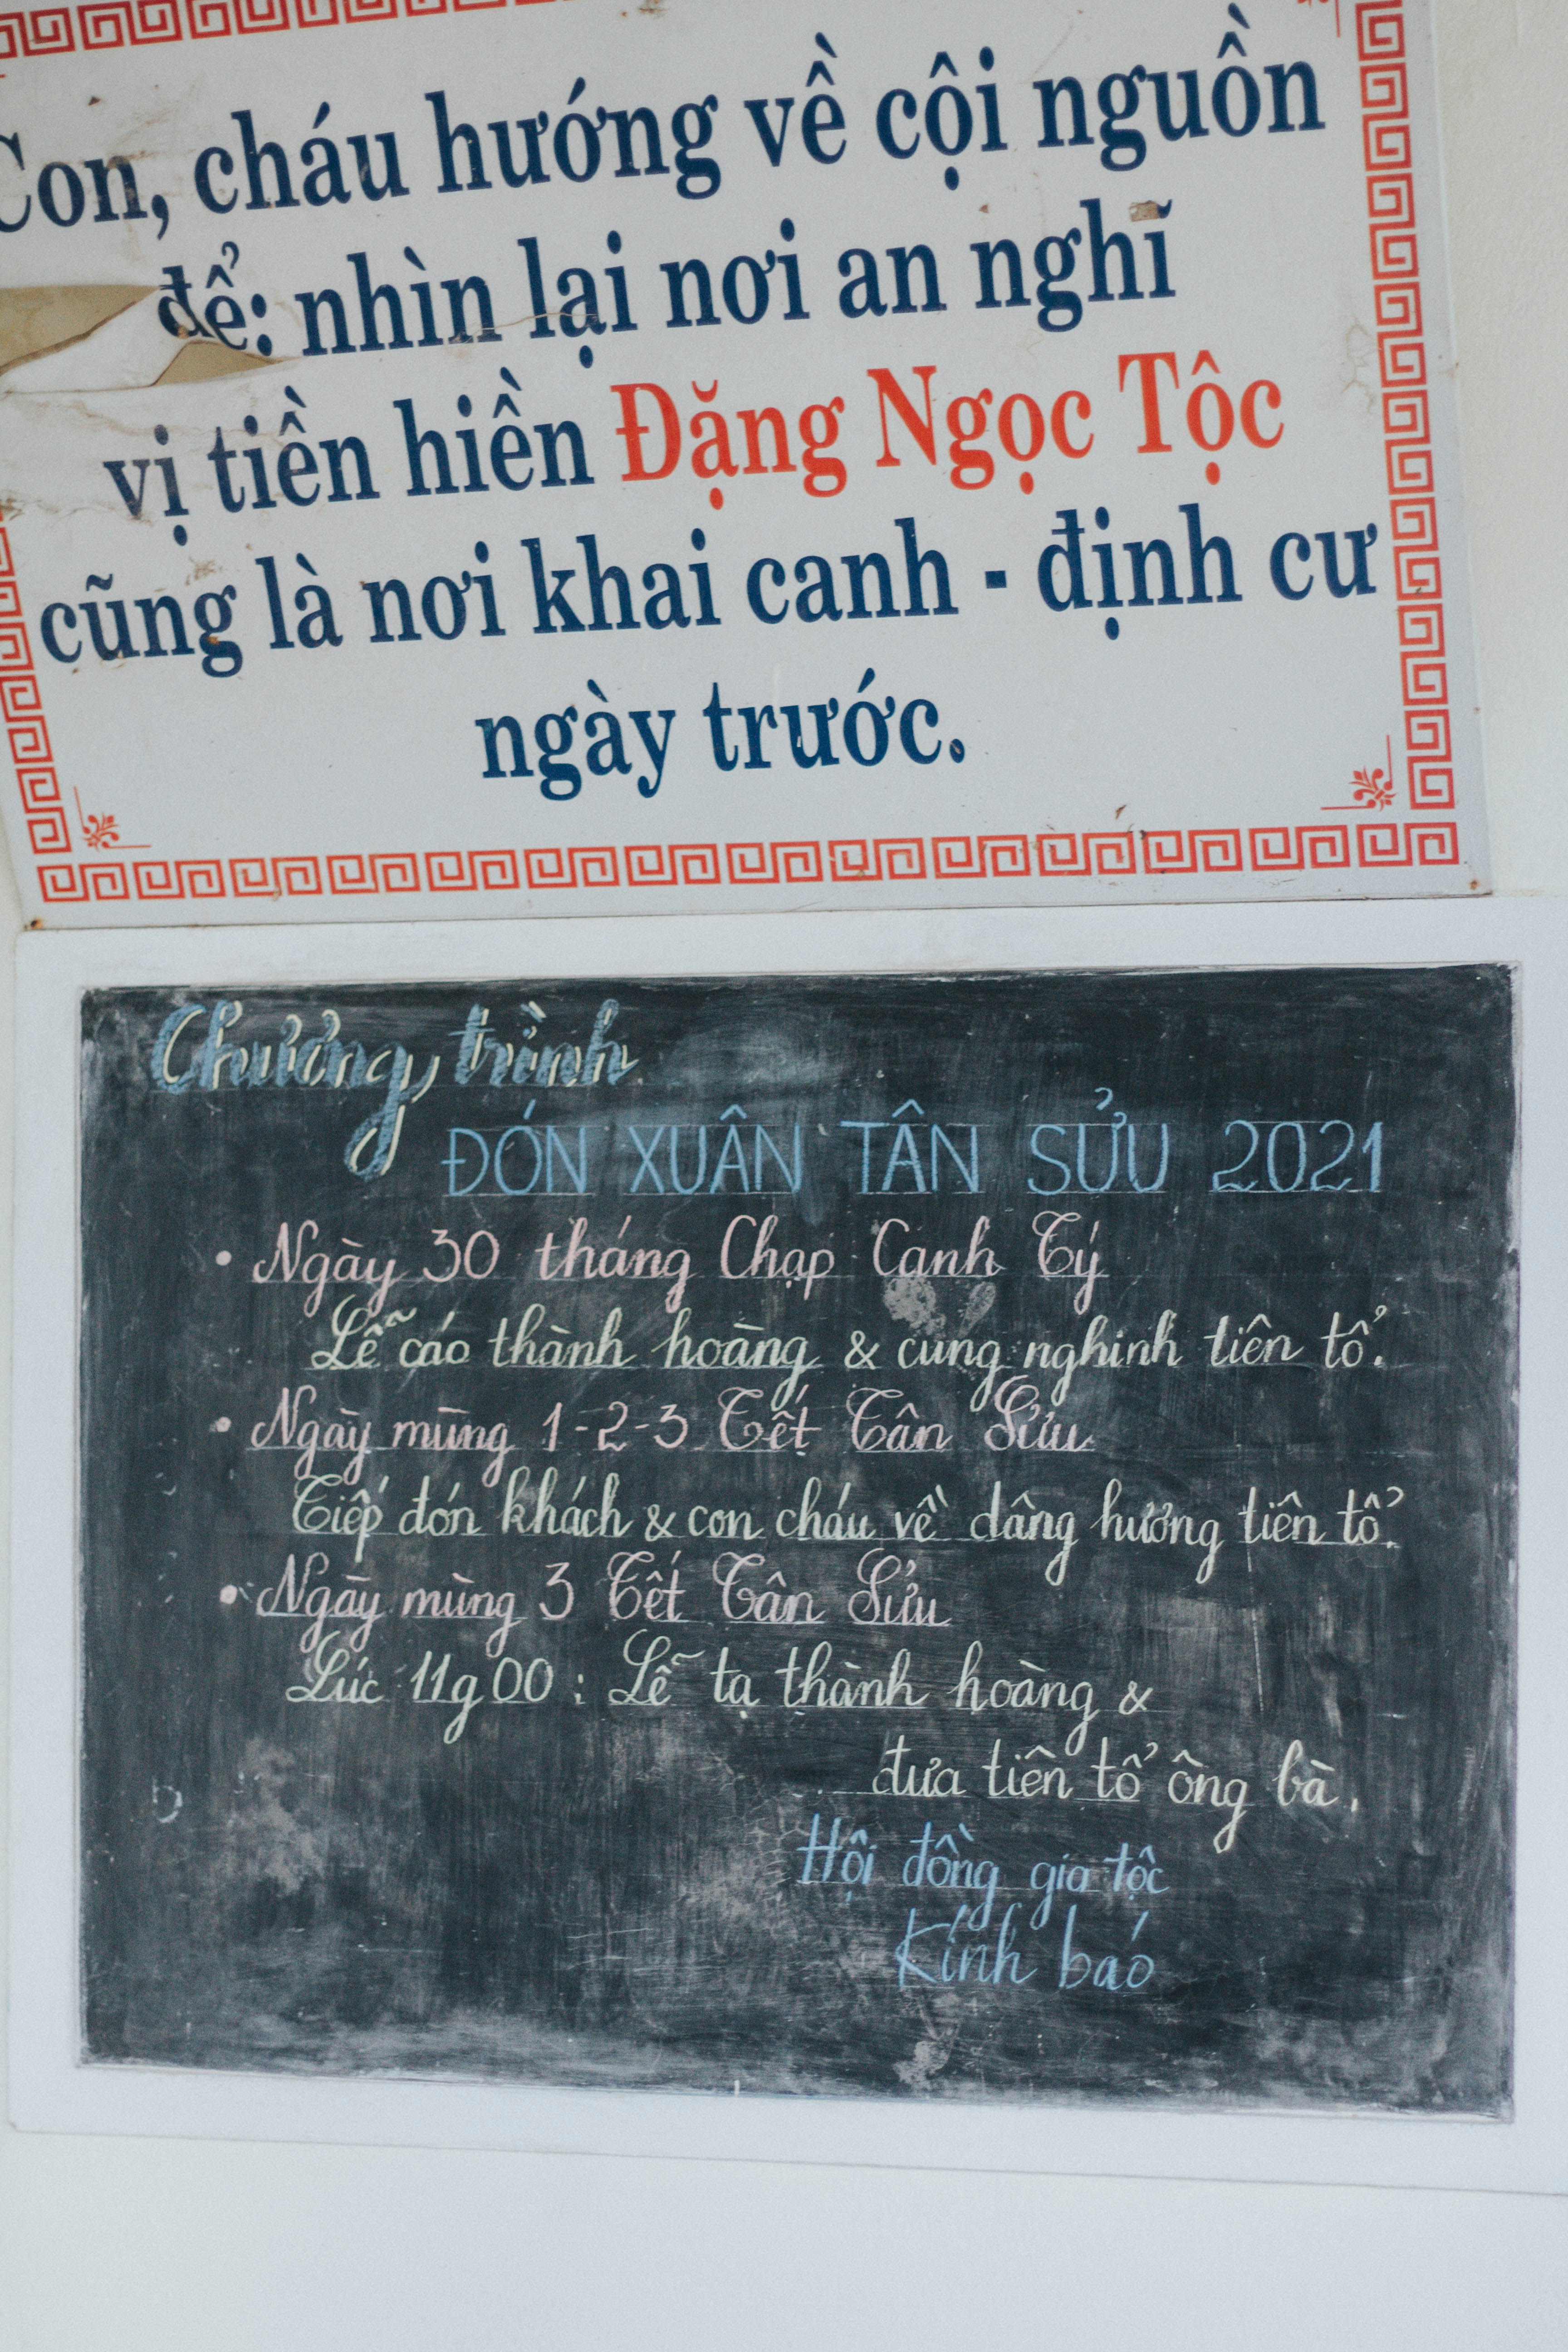 Con, cháu hướng về cội nguồn
để: nhìn lại nơi an nghĩ
vị tiền hiền Đặng Ngọc Tộc
cũng là nơi khai canh - định cư
ngày trước.
Chương trình
ĐÓN XUÂN TÂN SỬU 2021
• Ngày 30 tháng Chạp Canh Tý
Lễ cáo thành hoàng & cung nghinh tiên tổ.
• Ngày mùng 1-2-3 Tết Tân Sửu
Tiếp đón khách & con cháu về dâng hương tiên tổ.
• Ngày mùng 3 Tết Tân Sửu
Lúc 11g00 : Lễ tạ thành hoàng &
đưa tiên tổ ông bà.
Hội đồng gia tộc
Kính báo